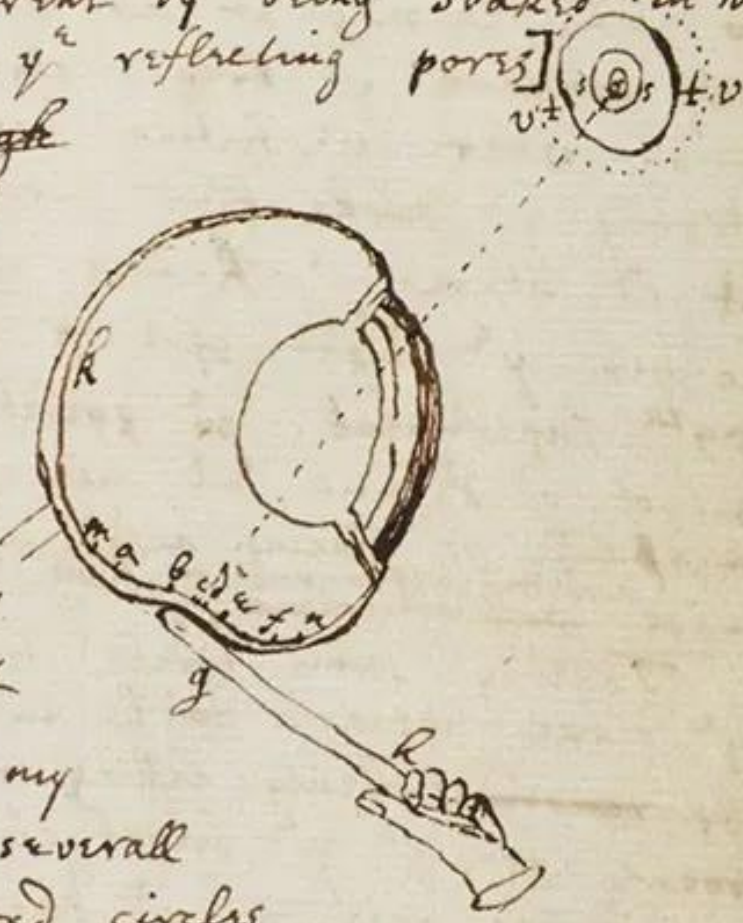 by being soaked in
yᵉ reflecting pores]
s s
v t t v
k
m a b c d e f n
g
h
my
severall
circles